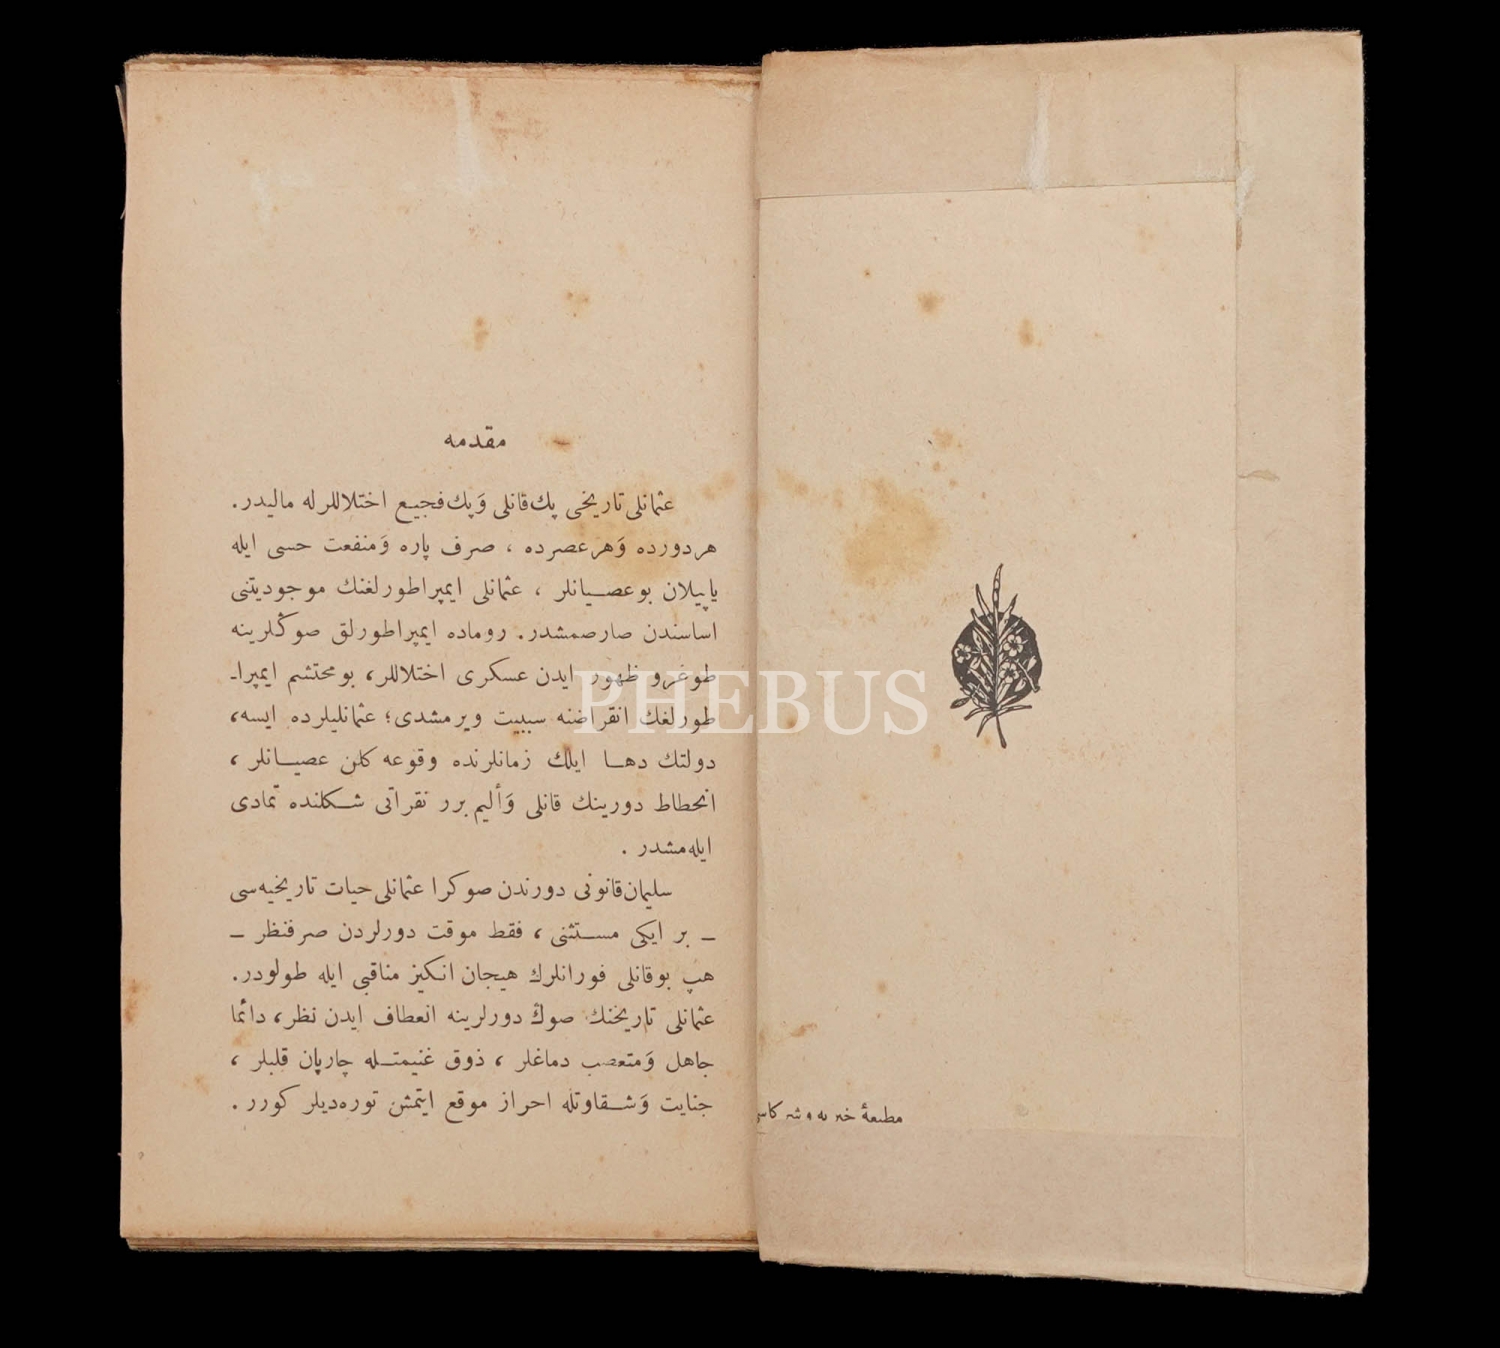 مطبعهٔ خیریه و شركاسی
مقدمه
عثمانلی تاریخی پك قانلی وَپك فجیع اختلاللرله مالیدر.
هردورده وَهرعصرده ، صرف پاره وَمنفعت حسی ایله
یاپیلان بوعصیانلر ، عثمانلی ایمپراطورلغنك موجودیتنی
اساسندن صارصمشدر. روماده ایمپراطورلق صوڭلرینه
طوغرو ظهور ایدن عسكری اختلاللر، بومحتشم ایمپرا-
طورلغك انقراضنه سببیت ویرمشدی؛ عثمانلیلرده ایسه،
دولتك دها ایلك زمانلرنده وقوعه كلن عصیانلر ،
انحطاط دورینك قانلی وَألیم برر نقراتی شكلنده تمادی
ایله‌مشدر .
سلیمان قانونی دورندن صوكرا عثمانلی حیات تاریخیه‌سی
– بر ایكی مستثنی ، فقط موقت دورلردن صرفنظر –
هپ بوقانلی فورانلرك هیجان انكیز مناقبی ایله طولودر.
عثمانلی تاریخنك صوڭ دورلرینه انعطاف ایدن نظر، دائما
جاهل وَمتعصب دماغلر ، ذوق غنیمتله چارپان قلبلر ،
جنایت وَشقاوتله احراز موقع ایتمش توره‌دیلر كورر .
PHEBUS